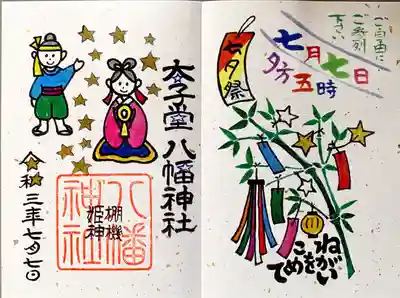 ご自由に
ご参列
下さい
七月七日
夕方五時
七夕祭
ねがい
をこ
めて
太子堂八幡神社
八幡神社
棚機
姫神
令和三年七月七日